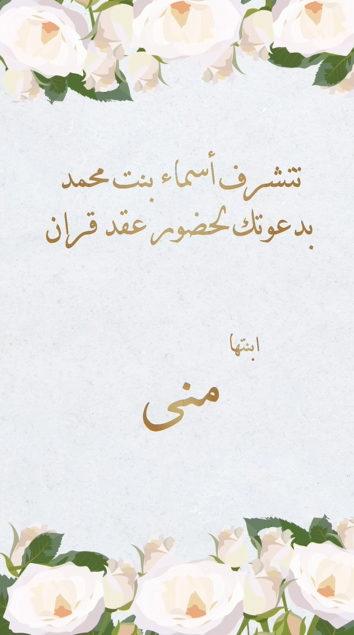 تتشرف أسماء بنت محمد
بدعوتك لحضور عقد قران
ابنتها
منى